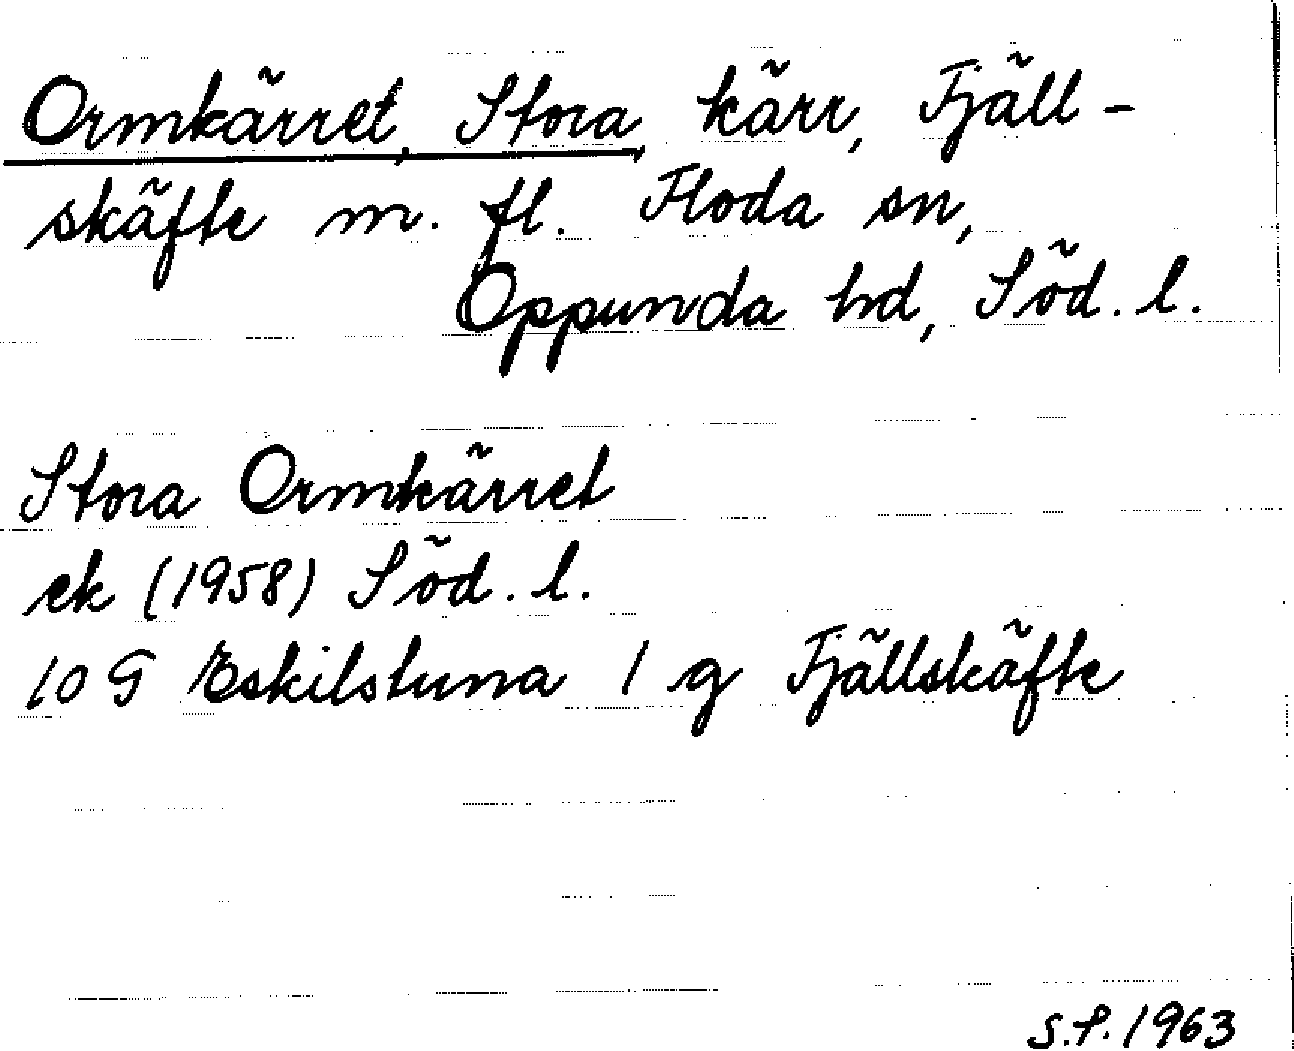 Ormkärret, Stora, kärr, Fjäll-
skäfte m. fl. Floda sn,
Oppunda hd, Söd. l.
Stora Ormkärret
ek (1958) Söd. l.
10 G Eskilstuna 1 g Fjällskäfte
S.P. 1963